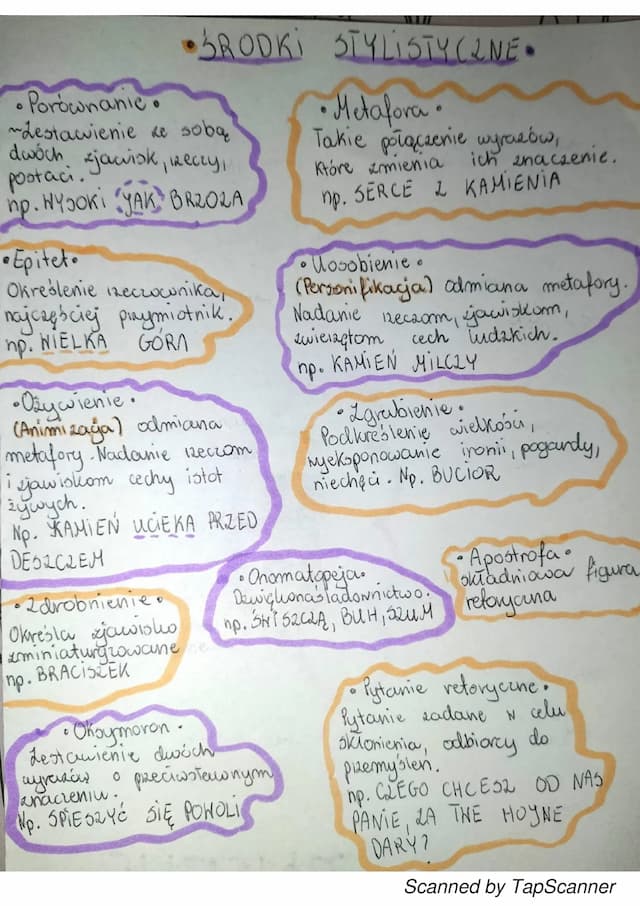 •ŚRODKI STYLISTYCZNE•
•Porównanie•
~Zestawienie ze sobą
dwóch, zjawisk, rzeczy,
postaci.
np. WYSOKI JAK BRZOZA
•Metafora•
Takie połączenie wyrazów,
które zmienia ich znaczenie.
np. SERCE Z KAMIENIA
•Epitet•
Określenie rzeczownika,
najczęściej przymiotnik.
np. WIELKA GÓRA
•Uosobienie•
(Personifikacja) odmiana metafory.
Nadanie rzeczom, zjawiskom,
zwierzętom cech ludzkich.
np. KAMIEŃ MILCZY
•Ożywienie•
(Animizacja) odmiana
metafory. Nadanie rzeczom
i zjawiskom cechy istot
żywych.
Np. KAMIEŃ UCIEKA PRZED
DESZCZEM
•Zgrubienie•
Podkreślenie wielkości,
wyeksponowanie ironii, pogardy,
niechęci. Np. BUCIOR
•Onomatopeja•
Dźwiękonaśladownictwo.
np. ŚWISZCZĄ, BUH, SZUM
•Apostrofa•
składniowa figura
retoryczna
•Zdrobnienie•
Określa zjawisko
zminiaturyzowane
np. BRACISZEK
•Oksymoron•
Zestawienie dwóch
wyrazów o przeciwstawnym
znaczeniu.
Np. SPIESZYĆ SIĘ POWOLI
•Pytanie retoryczne•
Pytanie zadane w celu
skłonienia, odbiorcy do
przemyśleń.
np. CZEGO CHCESZ OD NAS
PANIE, ZA TWE HOJNE
DARY?
Scanned by TapScanner